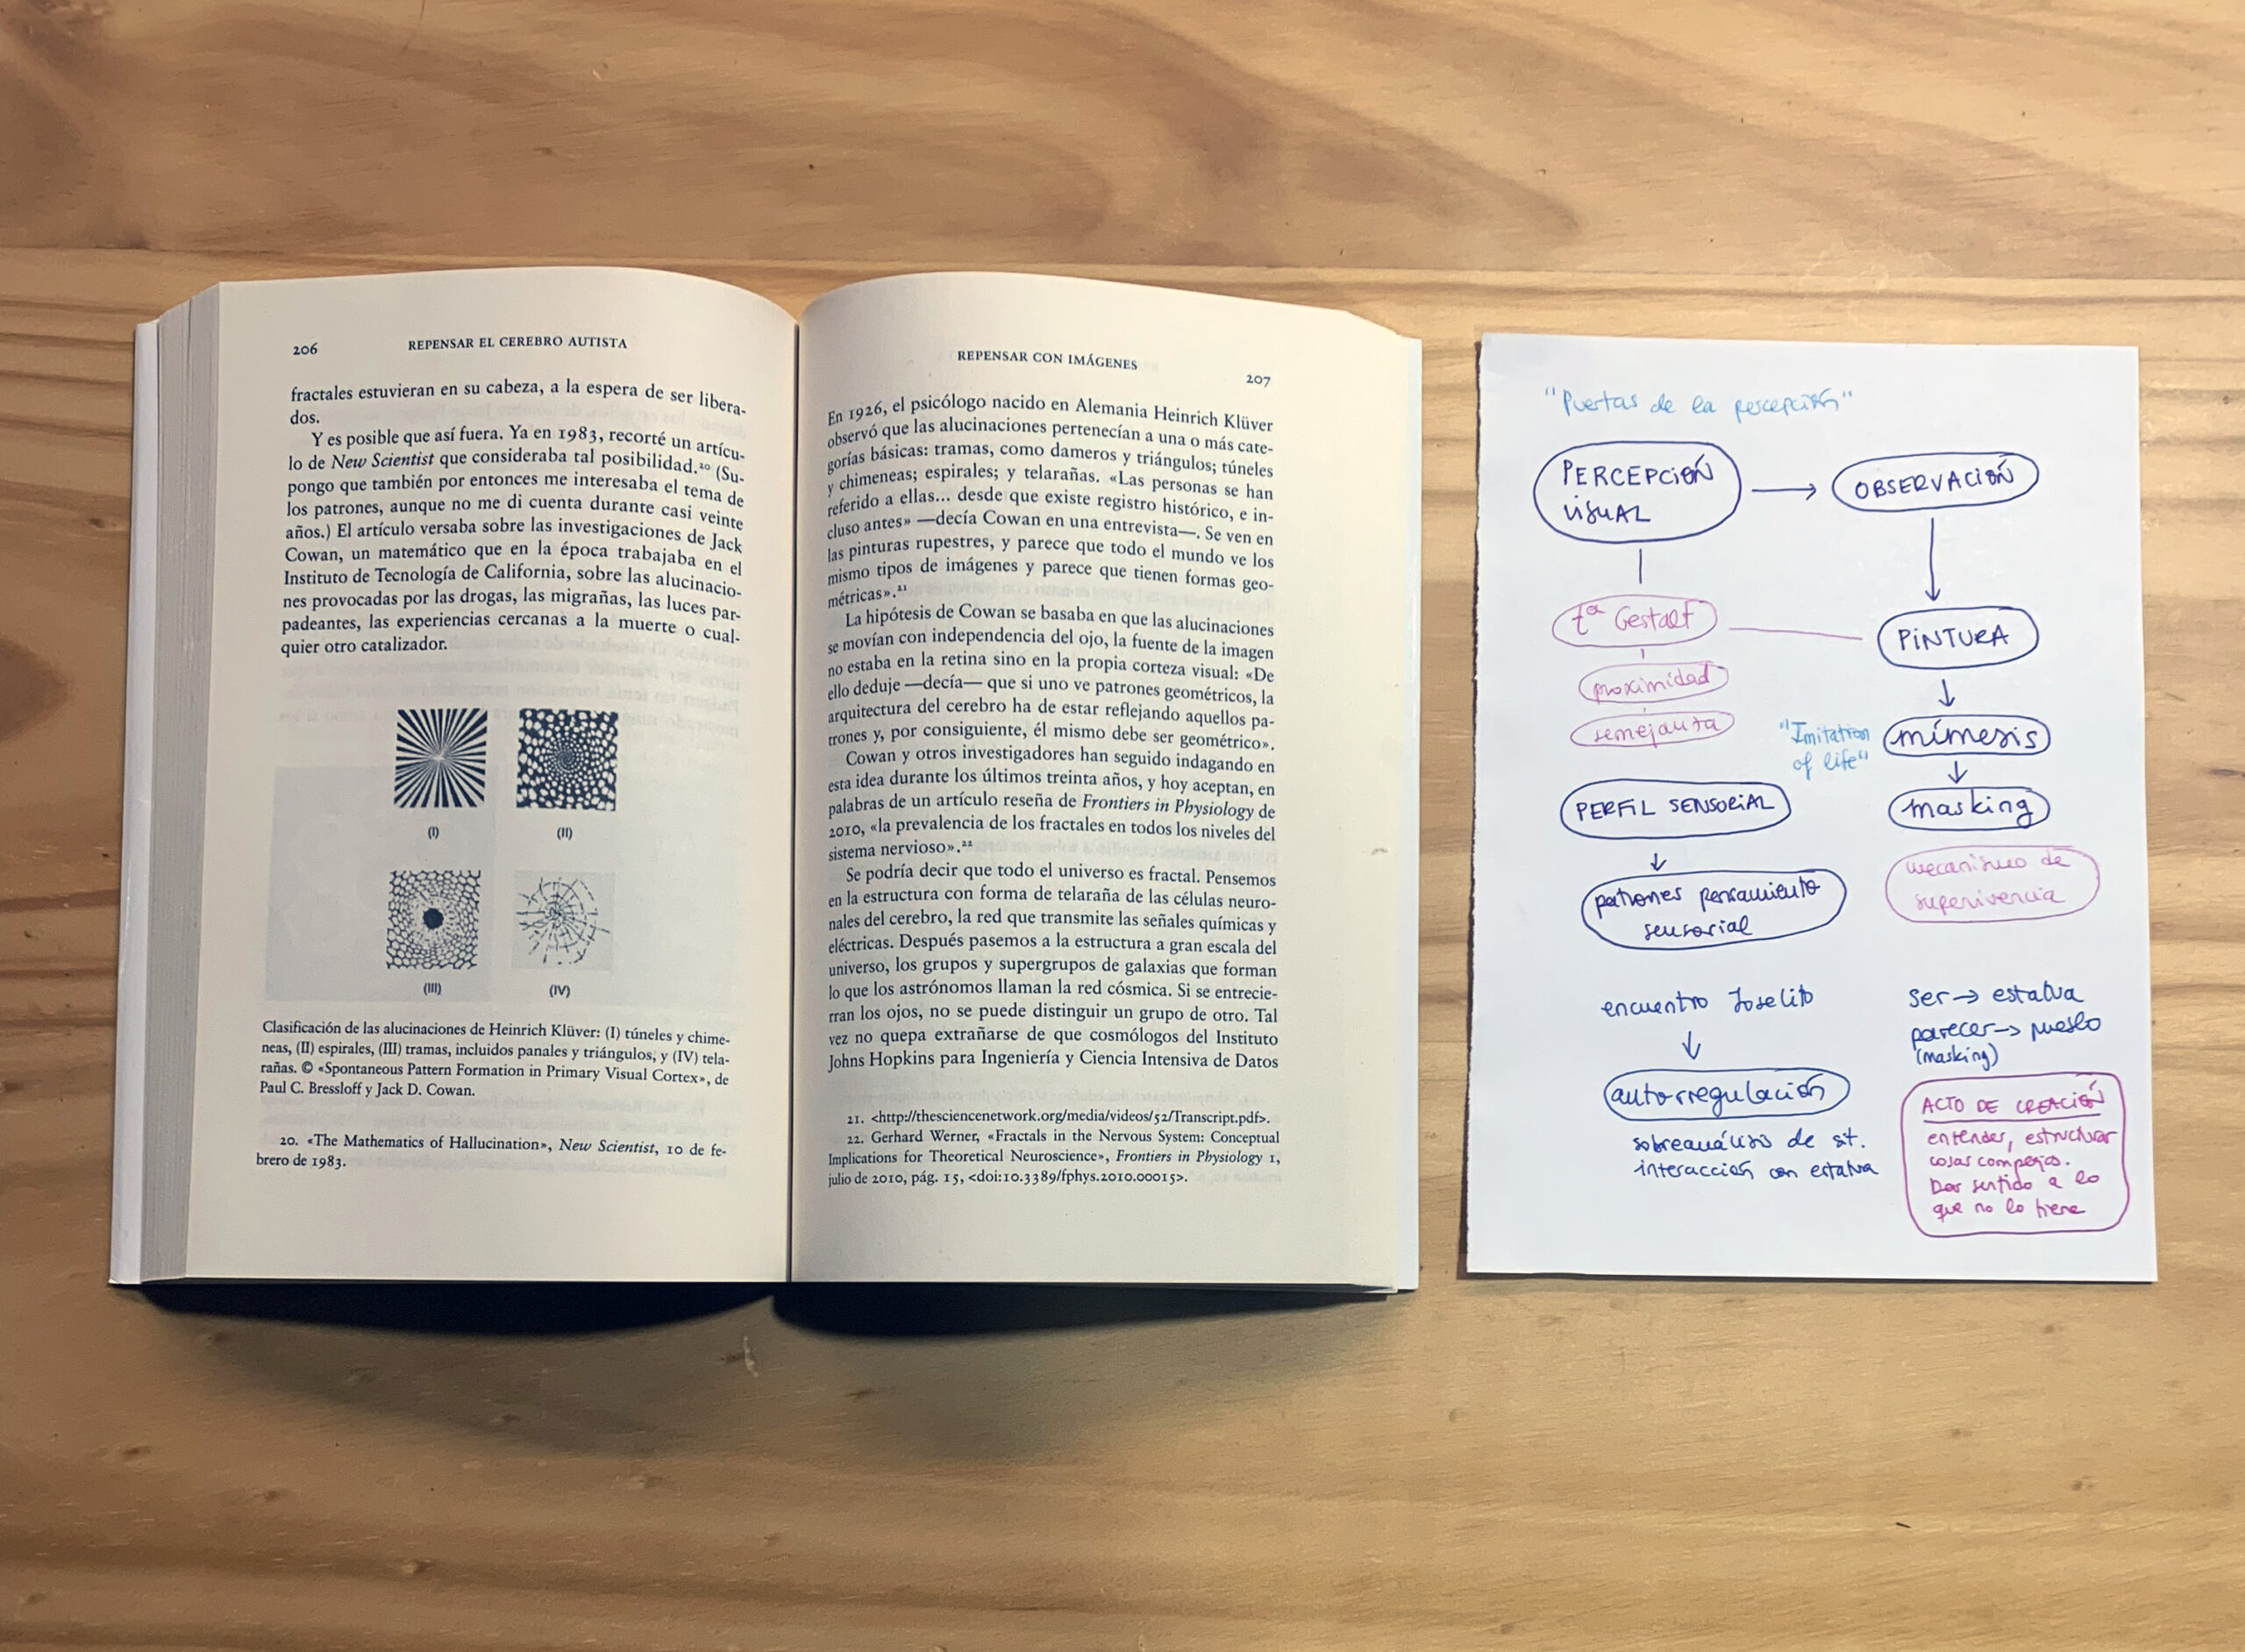 206
REPENSAR EL CEREBRO AUTISTA
fractales estuvieran en su cabeza, a la espera de ser libera-
dos.
Y es posible que así fuera. Ya en 1983, recorté un artícu-
lo de New Scientist que consideraba tal posibilidad.20 (Su-
pongo que también por entonces me interesaba el tema de
los patrones, aunque no me di cuenta durante casi veinte
años.) El artículo versaba sobre las investigaciones de Jack
Cowan, un matemático que en la época trabajaba en el
Instituto de Tecnología de California, sobre las alucinacio-
nes provocadas por las drogas, las migrañas, las luces par-
padeantes, las experiencias cercanas a la muerte o cual-
quier otro catalizador.
(I)
(II)
(III)
(IV)
Clasificación de las alucinaciones de Heinrich Klüver: (I) túneles y chime-
neas, (II) espirales, (III) tramas, incluidos panales y triángulos, y (IV) tela-
rañas. © «Spontaneous Pattern Formation in Primary Visual Cortex», de
Paul C. Bressloff y Jack D. Cowan.
20. «The Mathematics of Hallucination», New Scientist, 10 de fe-
brero de 1983.
REPENSAR CON IMÁGENES
207
En 1926, el psicólogo nacido en Alemania Heinrich Klüver
observó que las alucinaciones pertenecían a una o más cate-
gorías básicas: tramas, como dameros y triángulos; túneles
y chimeneas; espirales; y telarañas. «Las personas se han
referido a ellas... desde que existe registro histórico, e in-
cluso antes» —decía Cowan en una entrevista—. Se ven en
las pinturas rupestres, y parece que todo el mundo ve los
mismo tipos de imágenes y parece que tienen formas geo-
métricas».21
La hipótesis de Cowan se basaba en que las alucinaciones
se movían con independencia del ojo, la fuente de la imagen
no estaba en la retina sino en la propia corteza visual: «De
ello deduje —decía— que si uno ve patrones geométricos, la
arquitectura del cerebro ha de estar reflejando aquellos pa-
trones y, por consiguiente, él mismo debe ser geométrico».
Cowan y otros investigadores han seguido indagando en
esta idea durante los últimos treinta años, y hoy aceptan, en
palabras de un artículo reseña de Frontiers in Physiology de
2010, «la prevalencia de los fractales en todos los niveles del
sistema nervioso».22
Se podría decir que todo el universo es fractal. Pensemos
en la estructura con forma de telaraña de las células neuro-
nales del cerebro, la red que transmite las señales químicas y
eléctricas. Después pasemos a la estructura a gran escala del
universo, los grupos y supergrupos de galaxias que forman
lo que los astrónomos llaman la red cósmica. Si se entrecie-
rran los ojos, no se puede distinguir un grupo de otro. Tal
vez no quepa extrañarse de que cosmólogos del Instituto
Johns Hopkins para Ingeniería y Ciencia Intensiva de Datos
21. <http://thesciencenetwork.org/media/videos/52/Transcript.pdf>.
22. Gerhard Werner, «Fractals in the Nervous System: Conceptual
Implications for Theoretical Neuroscience», Frontiers in Physiology 1,
julio de 2010, pág. 15, <doi:10.3389/fphys.2010.00015>.
"Puertas de la percepción"
PERCEPCIÓN
VISUAL
OBSERVACIÓN
tª Gestalt
PINTURA
proximidad
semejanza
"Imitation
of life"
mímesis
PERFIL SENSORIAL
masking
patrones pensamiento
sensorial
mecanismo de
supervivencia
encuentro Joselito
autorregulación
sobreanálisis de sit.
interacción con estatua
ser → estatua
parecer → puesto
(masking)
ACTO DE CREACIÓN
entender, estructurar
cosas complejas.
Dar sentido a lo
que no lo tiene